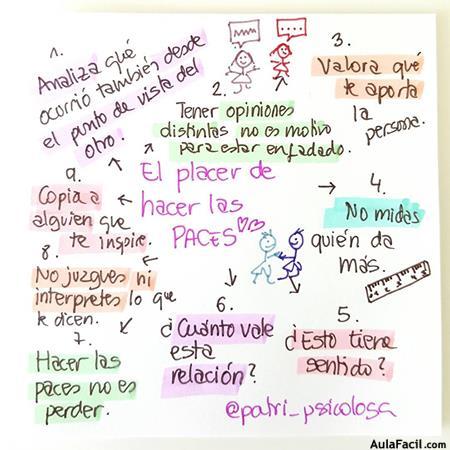 1.
Analiza qué
ocurrió también desde
el punto de vista del
otro.
2.
Tener opiniones
distintas no es motivo
para estar enfadado.
3.
Valora qué
te aporta
la
persona.
El placer de
hacer las
PACES
4.
No midas
quién da
más.
5.
¿Esto tiene
sentido?
6.
¿Cuánto vale
esta
relación?
7.
Hacer las
paces no es
perder.
8.
No juzgues ni
interpretes lo que
te dicen.
9.
Copia a
alguien que
te inspire.
1 2 3 4 5
@patri_psicologa
AulaFacil.com